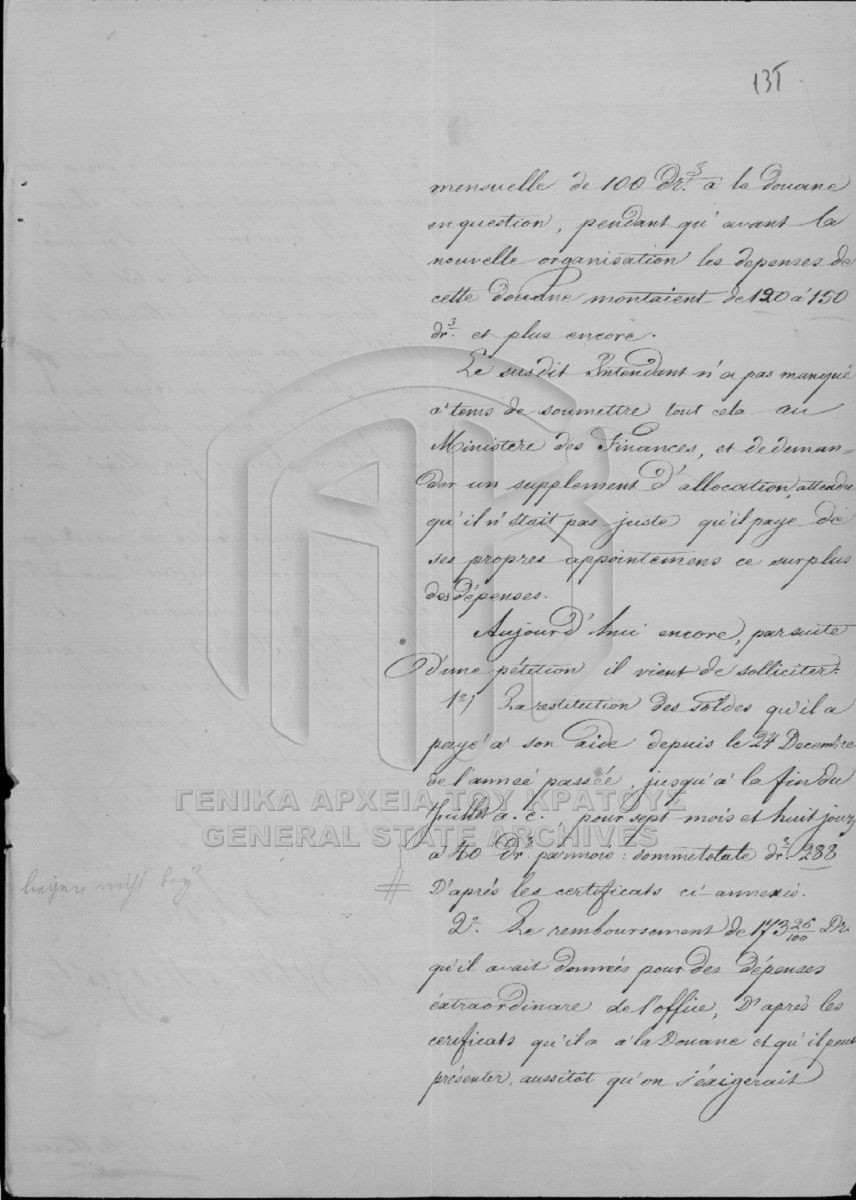 135
mensuelle de 100 dr.s a la douane
en question, pendant qu'avant la
nouvelle organisation les depenses de
cette douane montaient de 120 a' 150
dr.s et plus encore.
Le susdit Intendant n'a pas manqué
a' tems de soumettre tout cela au
Ministère des Finances, et de deman=
der un supplement d'allocation, attendu
qu'il n'était pas juste qu'il paye de
ses propres appointemens ce surplus
des dépenses.
Aujourd'hui encore, par suite
d'une pétition il vient de solliciter.
1o, La restitution des soldes qu'il a
payé a' son aide depuis le 24 Decembre
de l'année passée, jusqu'à la fin du
Juillet a. c., pour sept mois et huit jours
a' 40 dr.s par mois: somme totale dr.s 288
D'aprés les certificats ci-annexés.
liegen nicht bey
2o. Le remboursement de 173 26/100 Dr.
qu'il avait donnés pour des dépenses
éxtraordinare de l'office, D'aprés les
cerificats qu'il a a' la Douane et qu'il peut
présenter, aussitot qu'on s'éxigerait
ΓΕΝΙΚΑ ΑΡΧΕΙΑ ΤΟΥ ΚΡΑΤΟΥΣ
GENERAL STATE ARCHIVES